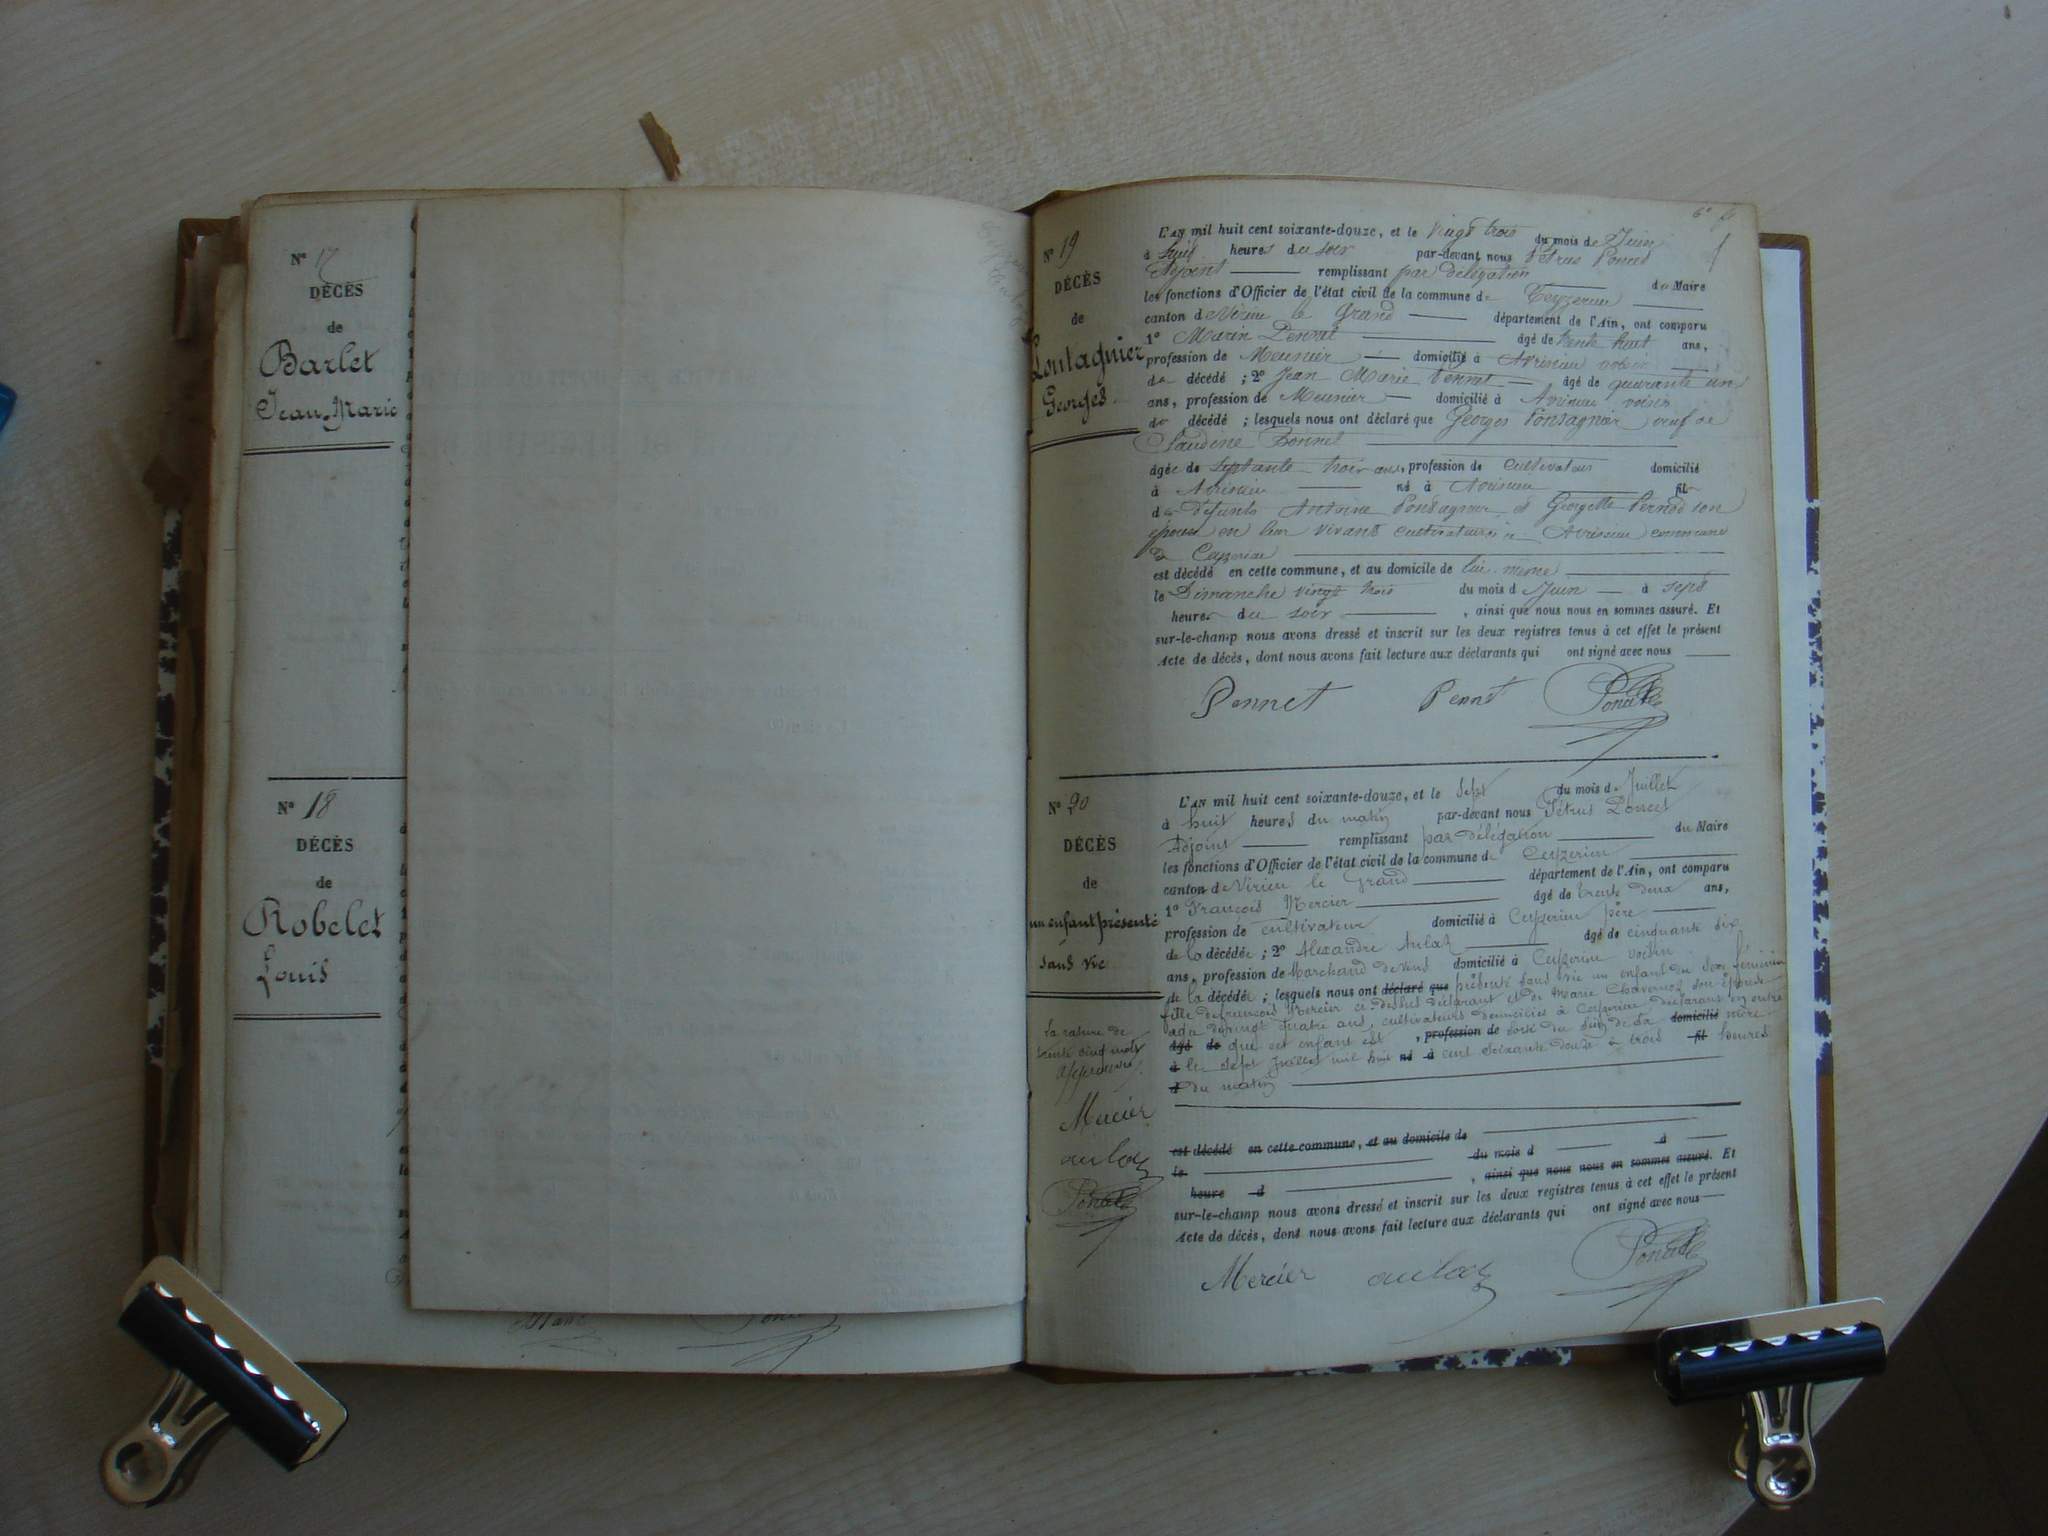 N° 17
DÉCÈS
de
Barlet
Jean-Marie
N° 18
DÉCÈS
de
Robelet
Louis
N° 19
DÉCÈS
de
Georges
L'AN mil huit cent soixante-douze, et le vingt trois du mois de Juin
à huit heures du soir par-devant nous Pétrus Poncet
Adjoint remplissant par délégation du Maire
les fonctions d'Officier de l'état civil de la commune de Ceyzerieu
canton de Virieu le Grand département de l'Ain, ont comparu
1° Marin Pennet âgé de trente huit ans,
profession de Meunier domicilié à Avrissieu voisin
du décédé ; 2° Jean Marie Pennet âgé de quarante un
ans, profession de Meunier domicilié à Avrissieu voisin
du décédé ; lesquels nous ont déclaré que Georges veuf de
Bonnet
âgé de septante trois ans, profession de cultivateur domicilié
à Avrissieu né à Avrissieu fils
des défunts Antoine et Georgette son
épouse en leur vivant cultivateurs à Avrissieu commune
de Ceyzerieu
est décédé en cette commune, et au domicile de lui-même
le Dimanche vingt trois du mois de Juin à sept
heures du soir , ainsi que nous nous en sommes assuré. Et
sur-le-champ nous avons dressé et inscrit sur les deux registres tenus à cet effet le présent
Acte de décès, dont nous avons fait lecture aux déclarants qui ont signé avec nous
Pennet Pennet Poncet
N° 20
DÉCÈS
de
un enfant présenté
sans vie
la rature de
trente cinq mots
approuvée
Mercier
aulaz
Poncet
L'AN mil huit cent soixante-douze, et le sept du mois de Juillet
à huit heures du matin par-devant nous Pétrus Poncet
Adjoint remplissant par délégation du Maire
les fonctions d'Officier de l'état civil de la commune de Ceyzerieu
canton de Virieu le Grand département de l'Ain, ont comparu
1° François Mercier âgé de trente deux ans,
profession de cultivateur domicilié à Ceyzerieu père
de la décédée ; 2° Alexandre Aulaz âgé de cinquante six
ans, profession de Marchand de vins domicilié à Ceyzerieu voisin
de la décédée ; lesquels nous ont déclaré que présenté sans vie un enfant du sexe féminin
fille de françois Mercier ci-dessus déclarant et de Marie son épouse
agée de vingt quatre ans, cultivateurs domiciliés à Ceyzerieu déclarant en outre
âgé de que cet enfant est , profession de sorti du sein de sa domicilié mère
à le sept Juillet mil huit né à cent soixante douze à trois fil heures
d du matin
est décédé en cette commune, et au domicile de
le du mois d à
heure d , ainsi que nous nous en sommes assuré. Et
sur-le-champ nous avons dressé et inscrit sur les deux registres tenus à cet effet le présent
Acte de décès, dont nous avons fait lecture aux déclarants qui ont signé avec nous
Mercier aulaz Poncet